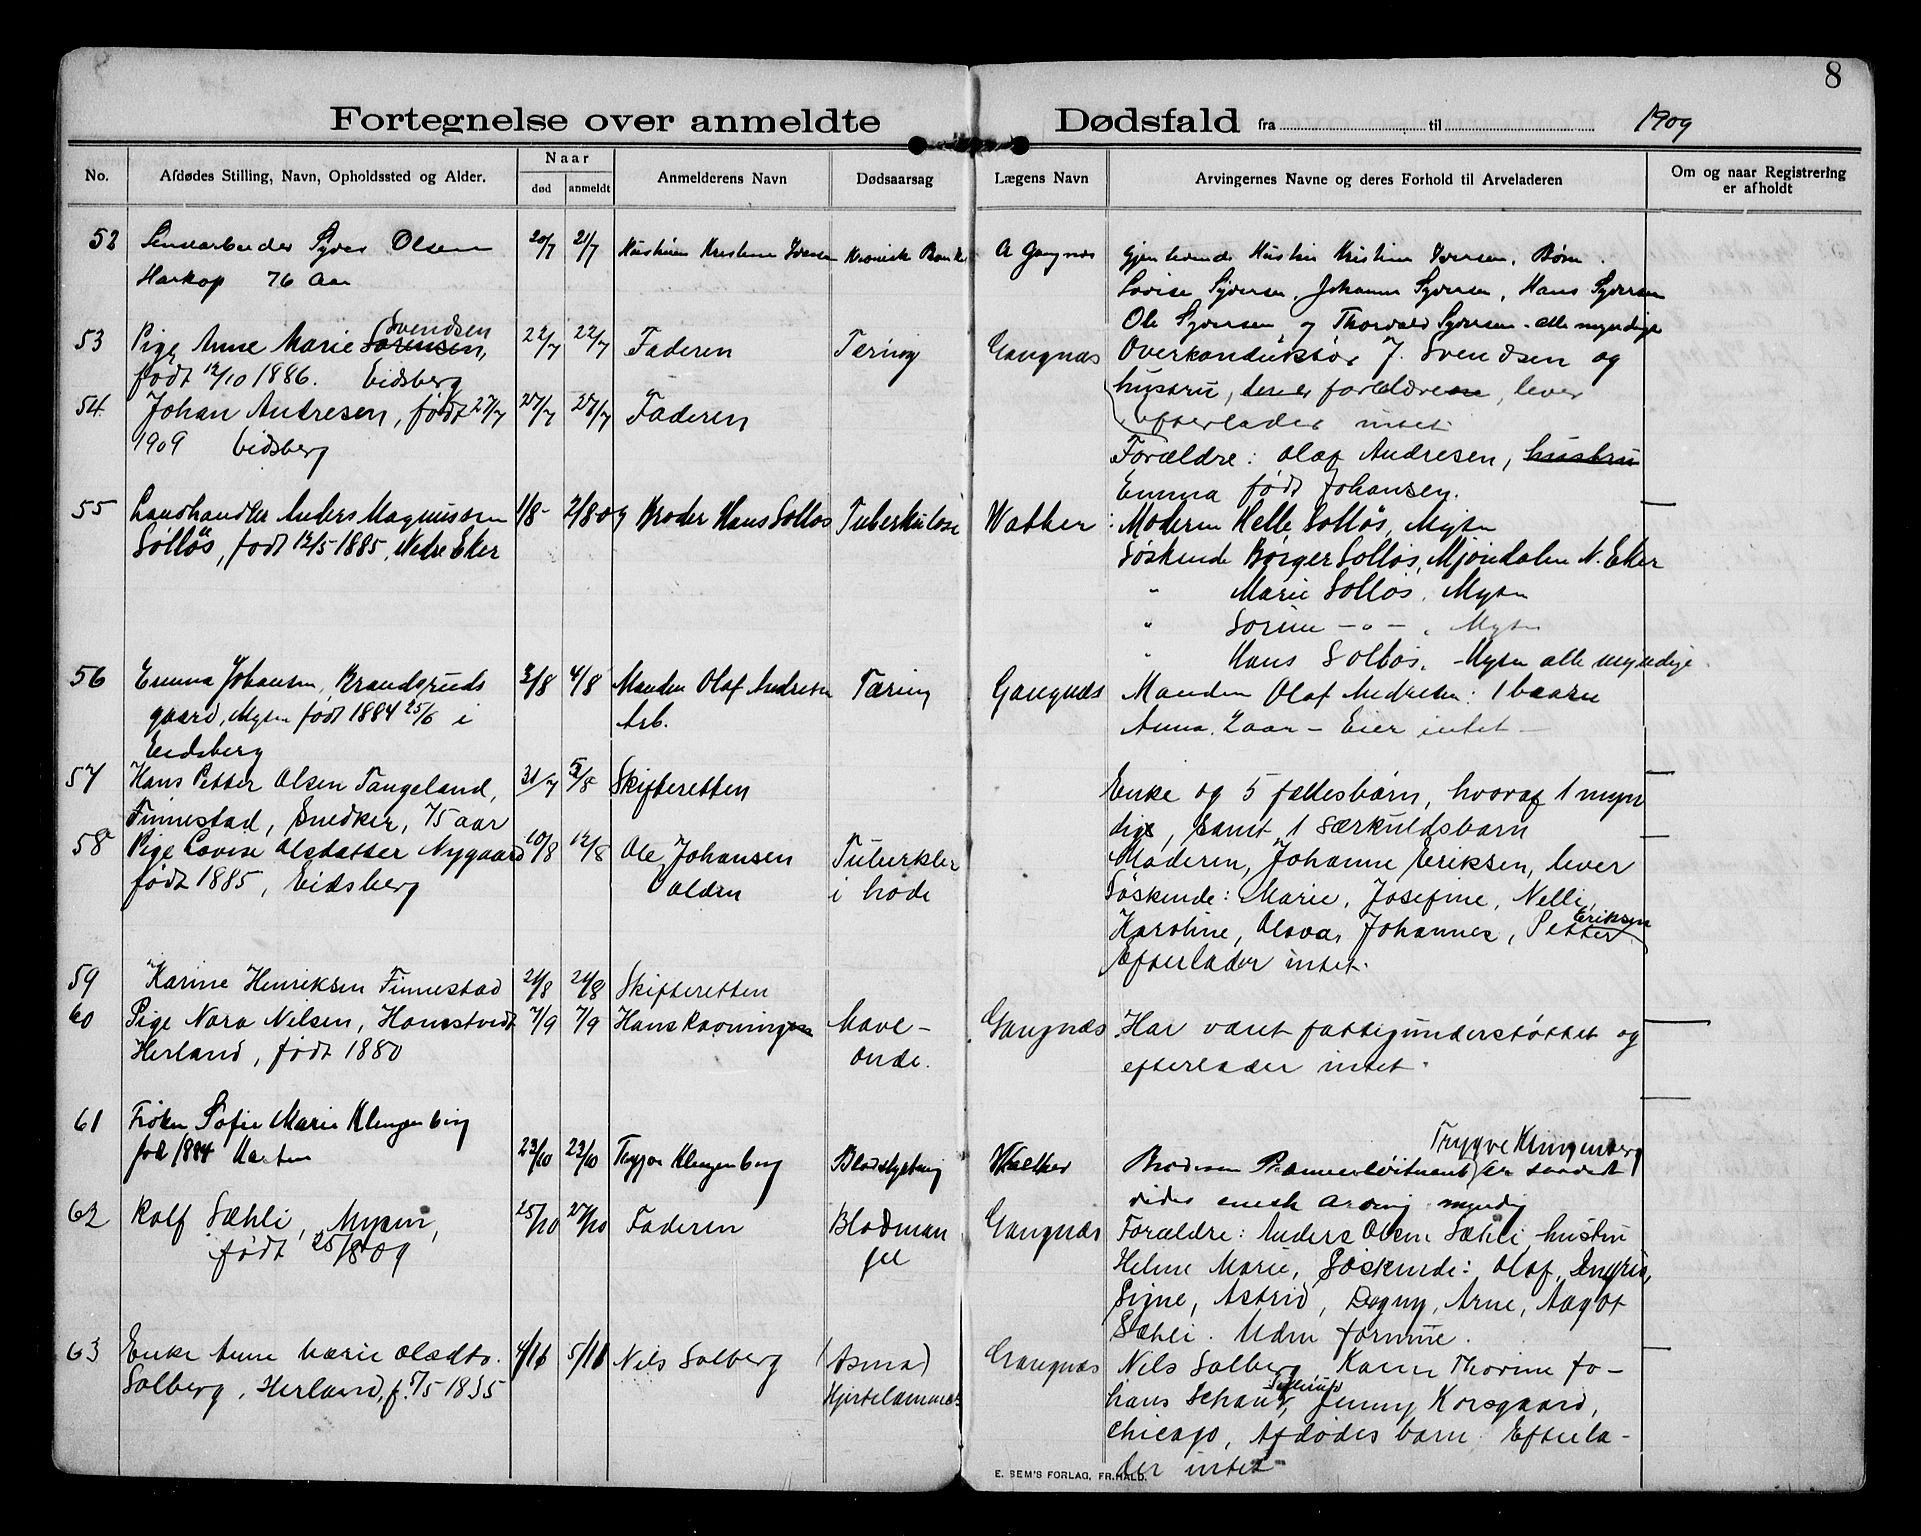 8
Fortegnelse over anmeldte Dødsfald fra til 1909
No.
Afdødes Stilling, Navn, Opholdssted og Alder.
Naar
død
anmeldt
Anmelderens Navn
Dødsaarsag
Lægens Navn
Arvingernes Navne og deres Forhold til Arveladeren
Om og naar Registrering
er afholdt
52 Olsen 20/7 21/7 Hustruen Kristine Kronisk Gangnæs Gjenlevende Hustru Kristine Børn
Harkop 76 Aar
Lovise Syversen, Johanne Syversen, Hans Syversen
Ole Syversen og Thorvald Syversen - alle myndige
53 Pige Anne Marie Sørensen, Svendsen 22/7 22/7 Faderen Tæring Gangnæs Overkonduktør J. Svendsen og
født 12/10 1886. Eidsberg
hustru, forældrene, lever
efterlader intet
54 Johan Andresen, født 27/7 27/7 27/7 Faderen
1909 Eidsberg
Forældre: Olaf Andresen, hustru
Emma født Johansen.
55 Landhandler Anders Magnussen 1/8 - 2/8-09 Broder Hans Solløs Tuberkulose Walther Moderen Helle Solløs, Mysen
Solløs, født 12/5 1885, Nedre Eker
Søskende Børger Solløs, Mjøndalen N. Eker
" Marie Solløs, Mysen
" Sorine -"- , Mysen
" Hans Solløs, Mysen alle myndige.
56 Emma Johansen, Brandsruds 3/8 4/8 Manden Olaf Andresen Tæring Gangnæs Manden Olaf Andresen: 1 baarn
gaard, Mysen født 1884 25/6 i Arb.
Anna, 2 aar - Eier intet -
Eidsberg
57 Hans Petter Olsen Tangeland, 31/7 5/8 Skifteretten
Finnestad, Snedker, 75 aar
Enke og 5 fællesbørn, hvoraf 1 myn
dig, samt 1 særkuldsbarn
58 Pige Lovise Olsdatter Nygaard 10/8 12/8 Ole Johansen Tuberkler
født 1885, Eidsberg i hode
Moderen, Johanne Eriksen, lever
Søskende: Marie, Josefine, Nelli,
Karoline, Olava, Johannes, Petter Eriksen
Efterlader intet.
59 Karine Henriksen Finnestad 21/8 24/8 Skifteretten
60 Pige Nora Nilsen, Honstvedt 7/9 7/9 Hans Mave-
Herland, født 1880 onde.
Gangnæs Har været fattigunderstøttet og
efterlader intet.
61 Frøken Sofie Marie Klingenberg
1884 23/10 23/10 Trygve Klingenberg Blodstyrtning Walther
Trygve Klingenberg
Broderen Premierløitnant er saavidt
vides eneste arving myndig
62 Rolf Sæhli, Mysen, 25/10 27/10 Faderen Blodman
født 25/8 09 gel
Gangnæs Forældre: Anders Olsen Sæhli, hustru
Helene Marie, Søskende: Olaf, Ingrid,
Signe, Astrid, Dagny, Arne, Aagot
Sæhli. Uden formue.
63 Enke Anne Marie Olsdtr. 4/11 5/11 Nils Solberg (Asma)
Solberg, Herland, Hjertelammelse
Gangnæs Nils Solberg, Karen Thorine Jo-
hans Jenny Korsgaard,
Chicago, Afdødes barn. Efterla-
der intet
E. SEM'S FORLAG, FR.HALD.